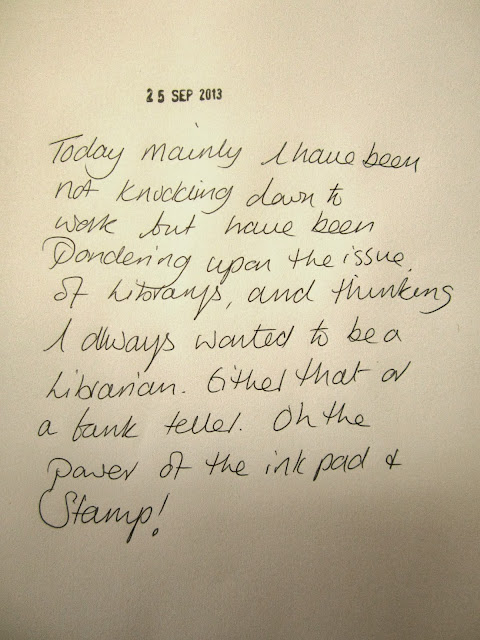 25 SEP 2013
Today mainly I have been
not knuckling down to
work but have been
Pondering upon the issue
of Librarys, and thinking
I always wanted to be a
Librarian. Either that or
a bank teller. Oh the
power of the ink pad &
Stamp!